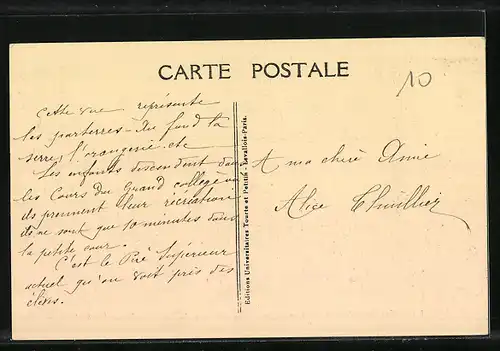 CARTE POSTALE
10
Cette vue représente
les parterres - du fond la
serre, l'orangerie. etc
Les enfants descendent dans
les Cours du Grand collège où
ils prennent leur récréation
ils ne sont que 10 minutes dans
la petite cour.
C'est le Père Supérieur
actuel qu'on voit près des
élèves.
Editions Universitaires Tourte et Petitin - Levallois-Paris.
A ma chère Amie
Alice Thuillier